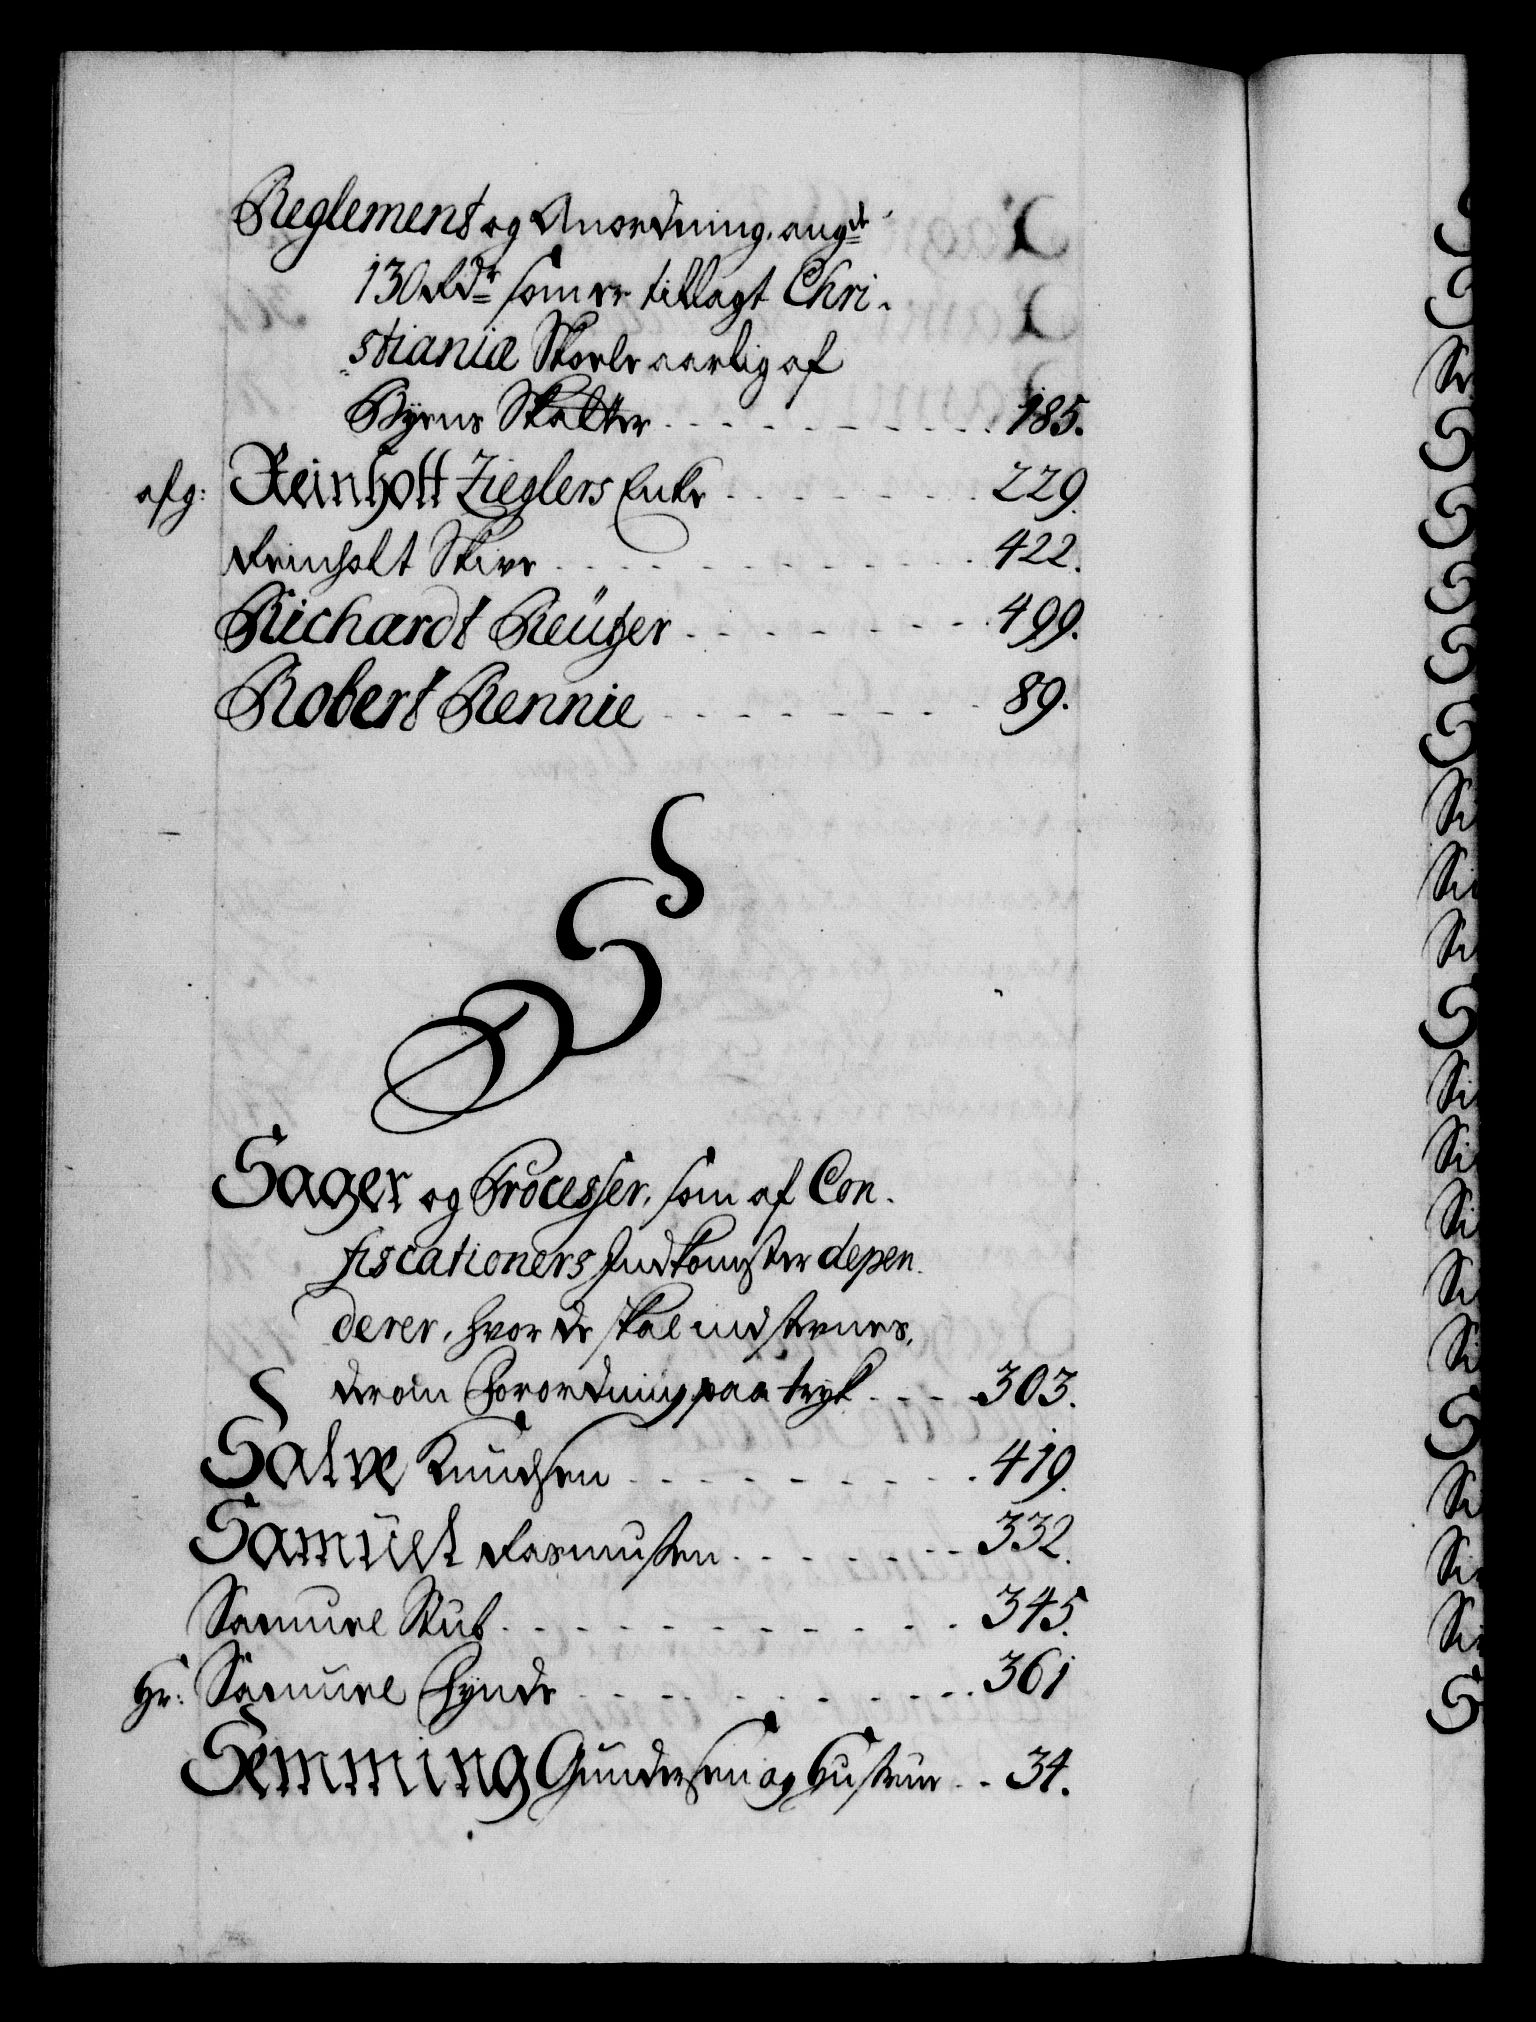 Reglement og Anordning, angde
130 Rdr som er tillagt Chri-
stianiæ Skoele aarlig af
Byens Skatter. . . . . . . . . . 185.
afg: Reinholt Zieglers Enke . . . . . . . 229.
Reinholt Skive . . . . . . . . . . . . 422.
Richardt Reützer . . . . . . . . 499.
Robert Rennie . . . . . . . . . 89.
S
Sager og Processer, som af Con-
fiscationers Indkomster depen-
derer, hvor de skal indstevnes,
derom Forordning paa tryk . . . . 303.
Salve Knudsen . . . . . . . . . . 419.
Samüel Rasmussen . . . . . . . 332.
Samuel Stub . . . . . . . . . . . . 345.
Hr: Samuel Hynde . . . . . . . . . . . 361
Semming Gundersen og Hustrue . . 34.